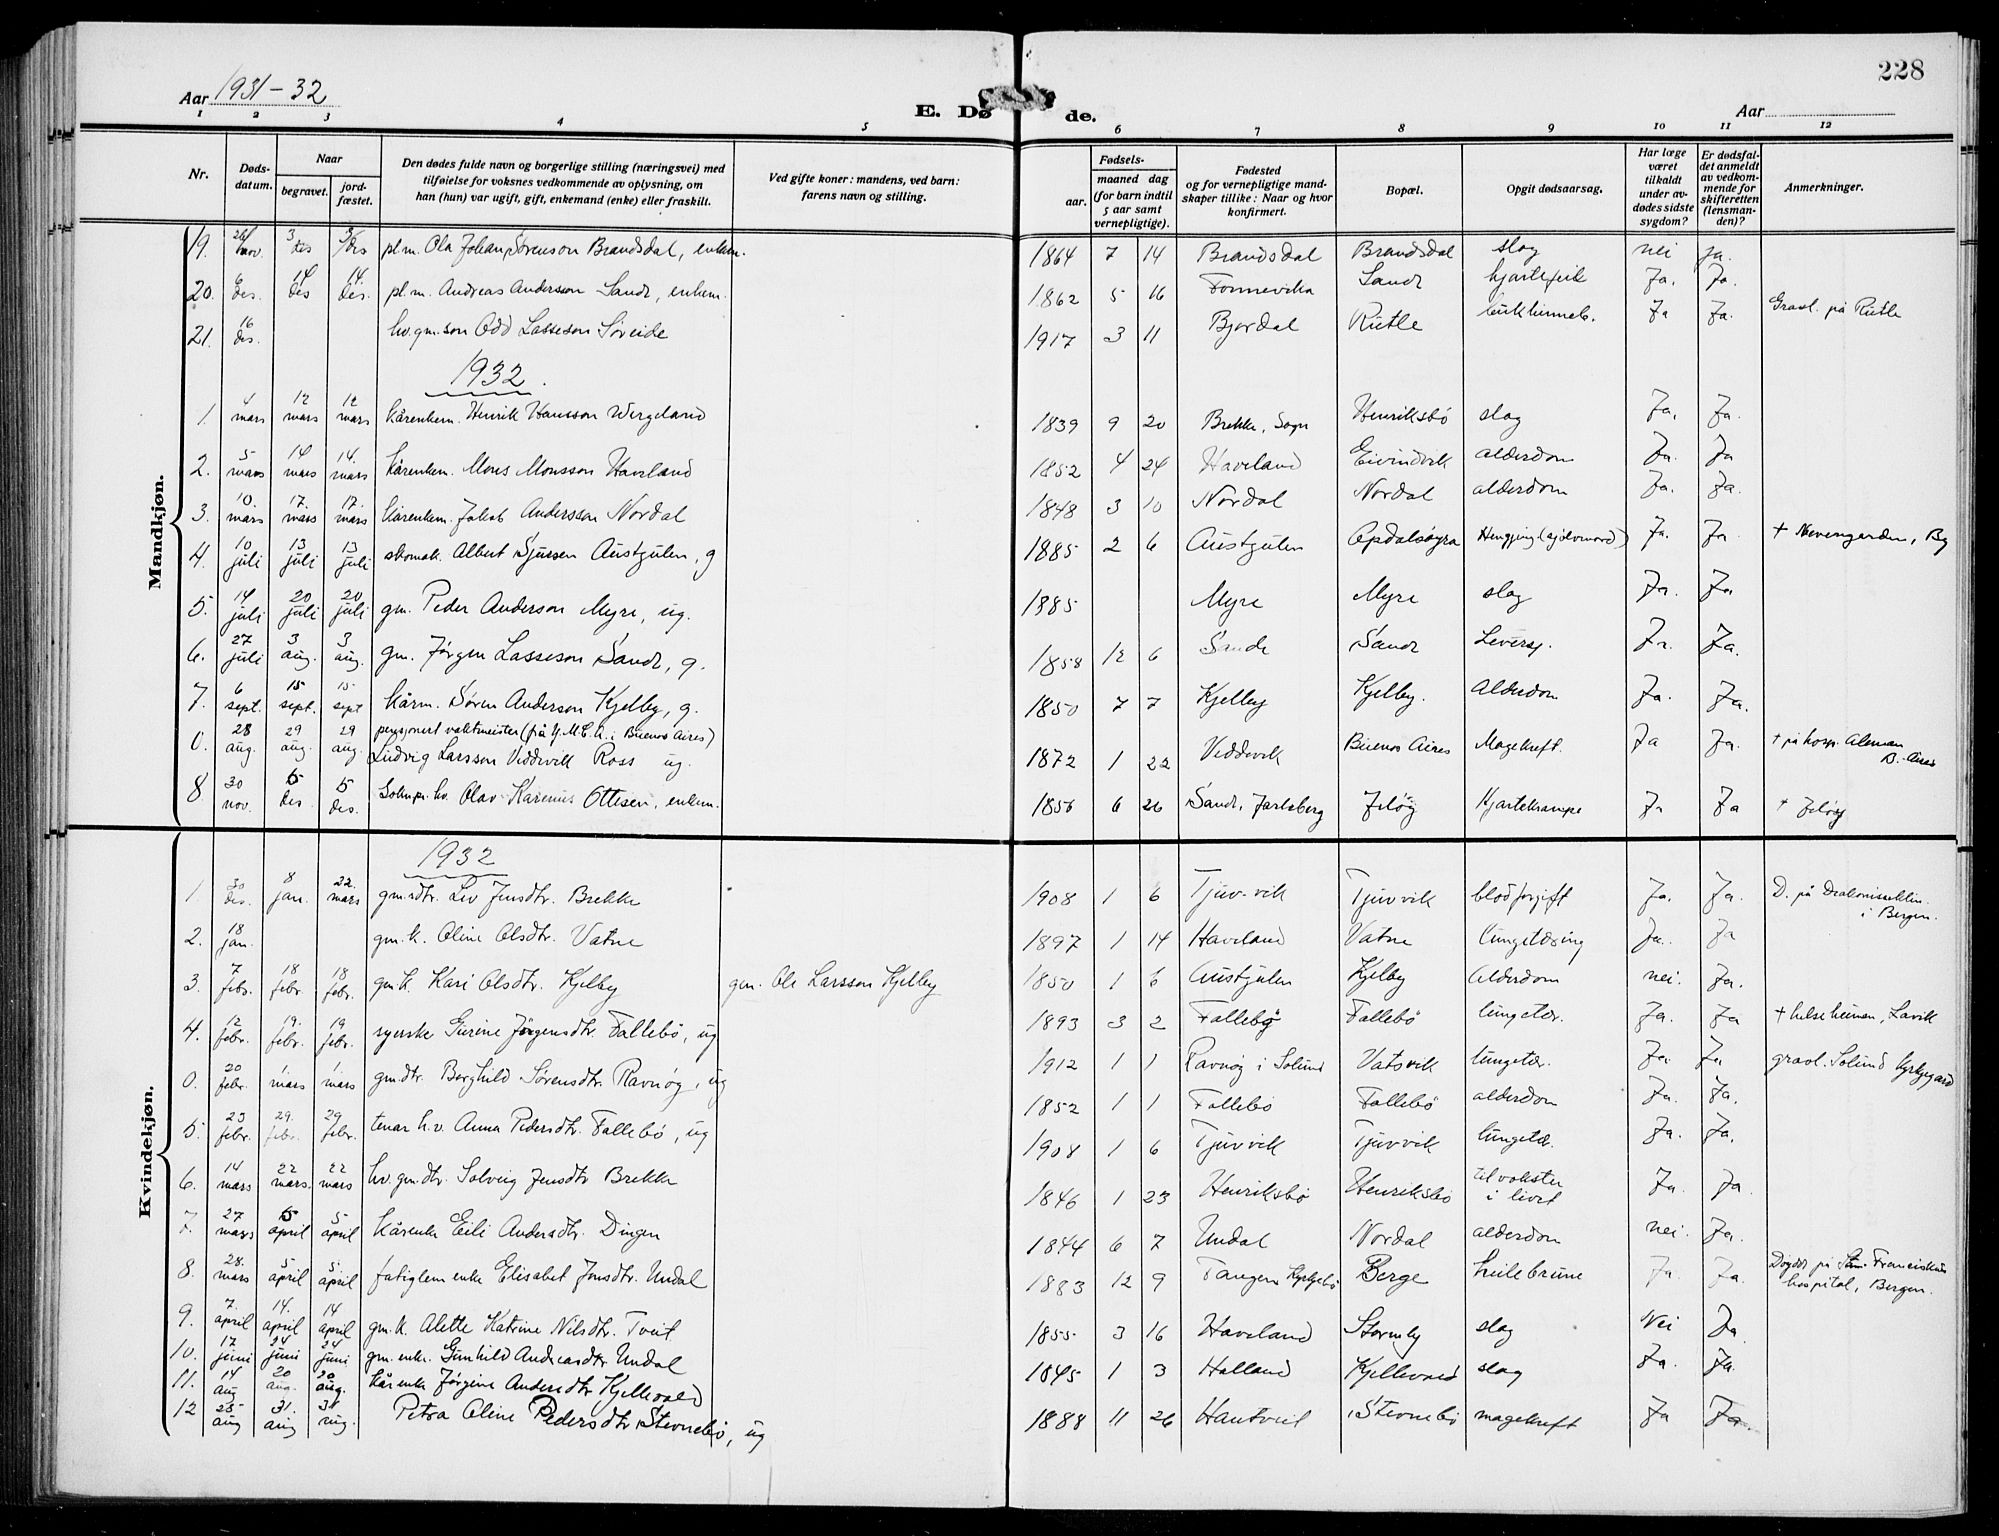 228
Aar 1931-32
E. Dø de.
Aar
1 2 3 4 5 6 7 8 9 10 11 12
Nr. Døds-datum. Naar begravet. jord-fæstet. Den dødes fulde navn og borgerlige stilling (næringsvei) med tilføielse for voksnes vedkommende av oplysning, om han (hun) var ugift, gift, enkemand (enke) eller fraskilt. Ved gifte koner: mandens, ved barn: farens navn og stilling. Fødsels- aar. maaned dag (for barn indtil 5 aar samt vernepligtige). Fødested og for vernepligtige mandskaper tillike: Naar og hvor konfirmert. Bopæl. Opgit dødsaarsag. Har læge været tilkaldt under avdødes sidste sygdom? Er dødsfaldet anmeldt av vedkommende for skifteretten (lensmanden)? Anmerkninger.
Mandkjøn.
19. 26 nov. 3 des 3 des pl.m. Ola Johan Sørenson Brandsdal, enkem. 1864 7 14 Brandsdal Brandsdal slag nei ja.
20. 6 des. 14 des 14 des. pl.m. Andreas Andersson Sande, enkem. 1862 5 16 Fonnevika Sande hjartefeil Ja. Ja.
21. 16 des. hv. gm.son Odd Lasseson Søreide 1917 3 11 Bjordal Rutle bukhinneb. Ja Ja. Gravl. på Rutle
1932.
1. 4 mars 12 mars 12 mars kårenkem. Henrik Hansson Wergeland 1839 9 20 Brekke, Sogn Henriksbø slag Ja. Ja.
2. 5 mars 14 mars 14. mars kårenkem. Mons Monsson Haveland 1852 4 24 Haveland Eivindvik alderdom Ja. Ja
3. 10 mars 17. mars 17. mars kårenkem. Jakob Andersson Nordal 1848 3 10 Nordal Nordal alderdom Ja. Ja.
4. 10 juli 13 juli 13 juli skomak. Albert Sjursen Austgulen, g 1885 2 6 Austgulen Opdalsøyra Hengjing (sjølvmord) Ja. Ja. + Nevengarden, Bg
5. 14 juli 20 juli 20 juli gm. Peder Anderson Myre, ug. 1885 Myre Myre slag Ja. Ja
6. 27 juli 3 aug. 3 aug. gm. Jørgen Lasseson Sande, g. 1858 12 6 Sande Sande Leversj. Ja. Ja.
7. 6 sept. 15 sept. 15 sept kårm. Søren Anderson Kjelby, g. 1850 7 7 Kjelby Kjelby. Alderdom Ja. Ja.
0. 28 aug. 29 aug. 29 aug. pensjonert vaktmeister (frå Y.M.C.A. i Buenos Aires)
Ludvig Larsson Veddevik Ross ug. 1872 1 22 Veddevik Buenos Aires Magekreft. Ja Ja. + på hosp. Aleman
B.-Aires
8. 30 nov. 5 des. 5 des. Sokn.pr. hv. Olav Karenius Ottesen, enkem. 1856 6 26 Sande, Jarlsberg Jeløy Hjartekrampe Ja Ja + Jeløy
Kvindekjøn.
1932
1. 30 des. 8 jan. 22. mars gm.sdtr. Liv Jensdtr. Brekke 1908 1 6 Tjuvvik Tjuvvik blodforgift Ja. Ja. D. på Diakonisseklin.
i Bergen.
2. 18 jan. gm.k. Oline Olsdtr. Vatne 1897 1 14 Haveland Vatne lungetæring Ja. Ja
3. 7 febr. 18 febr. 18 febr. gm.k. Kari Olsdtr. Kjelby gm. Ole Larsson Kjelby 1850 1 6 Austgulen Kjelby Alderdom nei. Ja.
4. 12 febr. 19. febr. 19 febr. syerske Gurine Jørgensdtr. Fallebø, ug 1893 3 2 Fallebø Fallebø lungetær. Ja. Ja + helseheimen, Lavik
0. 20 febr. 1 mars 1 mars gmdtr. Borghild Sørensdtr. Ravnøy, ug 1912 1 1 Ravnøy i Solund Vatsvik lungetær. Ja. Ja gravl. Solund kyrkjegard
5. 23 febr. 29. febr. 29 febr. tenar h.v. Anna Pedersdtr. Fallebø, ug 1852 1 1 Fallebø Fallebø alderdom Ja. Ja.
6. 14 mars 22 mars. 22 mars hv. gmdtr. Solveig Jensdtr Brekke 1908 1 6 Tjuvvik Tjuvvik lungetæ. Ja. Ja.
7. 27 mars 5 april 5 april kårenke Eili Andersdtr. Dingen 1846 1 23 Henriksbø Henriksbø tilvokster
i livet Ja. Ja.
8. 28. mars 5 april 5 april fatiglem enke Elisabet Jensdtr. Undal 1844 6 7 Undal Nordal alderdom nei. Ja.
9. 7. april 14. april 14 april gm.k. Alette Katrine Nilsdtr. Tveit 1883 12 9 Tangen Kyrkjebø Berge Ja. Ja. Døydde på St. Franciskus
hospital, Bergen.
10. 17 juni 24 juni 24 juni gm. enke. Gunhild Andreasdtr Undal 1855 3 16 Haveland Stormby slag Nei Ja
11. 14 aug 20 aug. 20 aug. kårenke Jørgine Andersdtr Kjellevold 1845 1 3 Halland Kjellevold slag Ja. Ja.
12 25 aug 31. aug 31 aug. Petra Oline Pedersdtr Stevnebø, ug 1888 11 26 Hantveit Stevnebø magekreft Ja Ja.